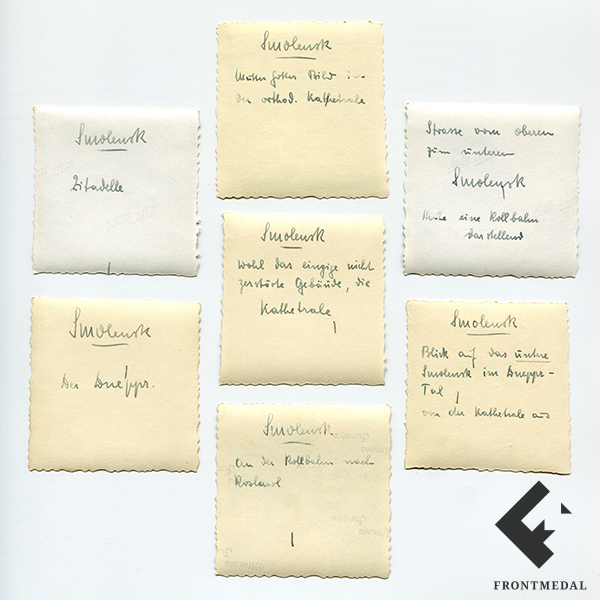 Smolensk
Mutter Gottes Bild in
der orthod. Kathetrale
Smolensk
Zitadelle
Strasse vom oberen
zum unteren
Smolensk
eine Rollbahn
darstellend
Smolensk
wohl das einzige nicht
zerstörte Gebäude, die
Kathetrale
Smolensk
Der Dnéppr.
Smolensk
Blick auf das untere
Smolensk im Dneppr-
Tal
von der Kathetrale aus
Smolensk
an der Rollbahn nach
Roslawl
FRONTMEDAL